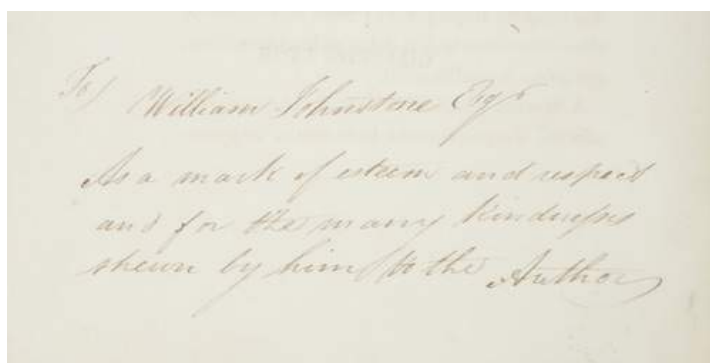 To/
William Johnstone Esqr
As a mark of esteem and respect
and for the many kindnesses
shewn by him to the Author